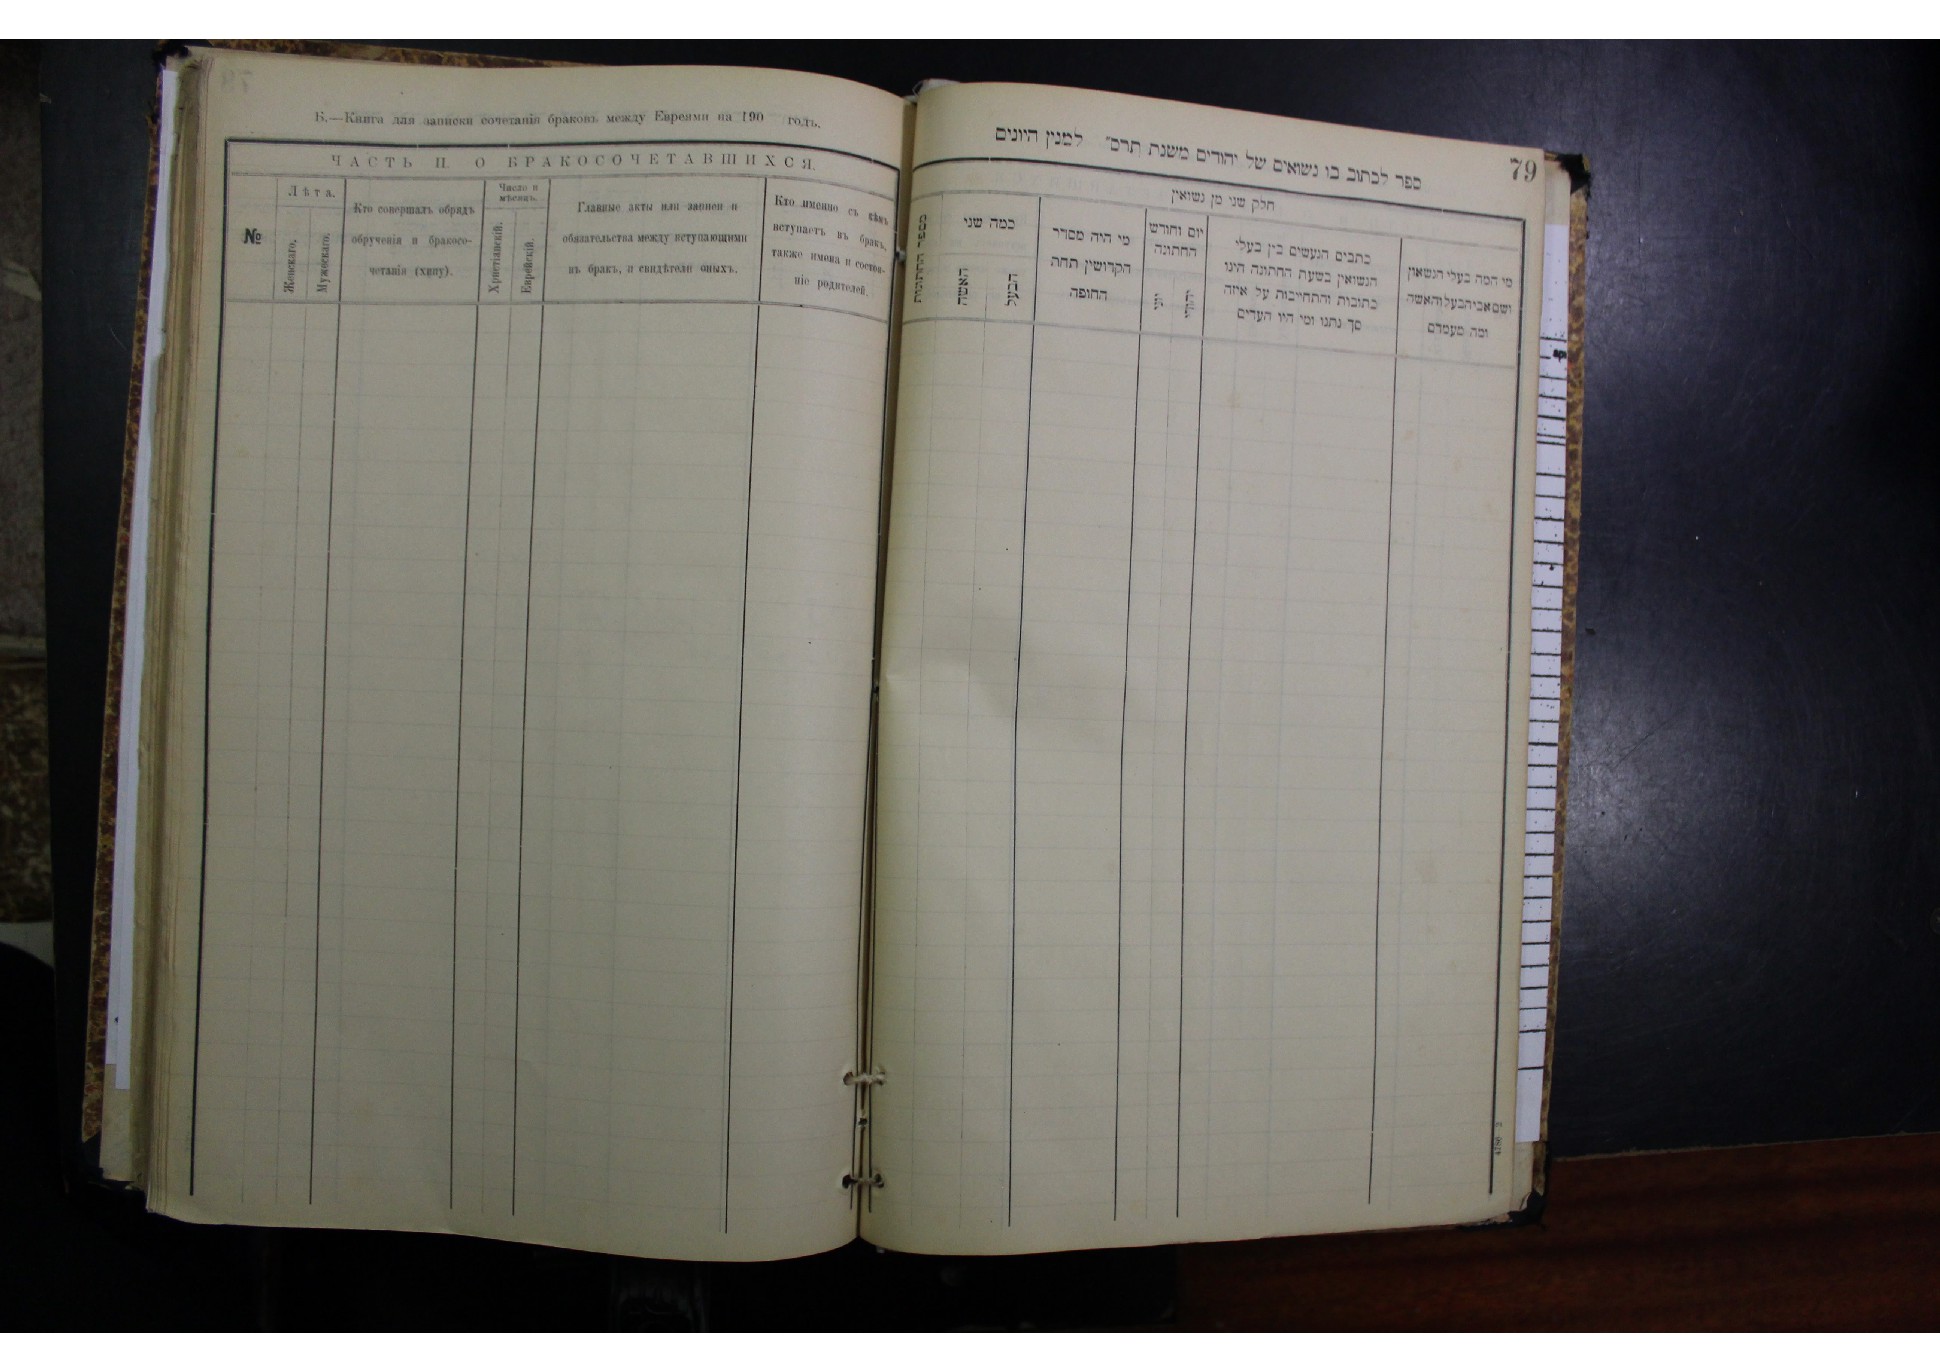 Б.—Книга для записки сочетанія браковъ между Евреями на 190 годъ.
ЧАСТЬ II. О БРАКОСОЧЕТАВШИХСЯ.
№
Лѣта.
Женскаго.
Мужескаго.
Кто совершалъ обрядъ
обрученія и бракосо-
четанія (хупу).
Число и
мѣсяцъ.
Христіанскій.
Еврейскій.
Главные акты или записи и
обязательства между вступающими
въ бракъ, и свидѣтели оныхъ.
Кто именно съ кѣмъ
вступаетъ въ бракъ,
также имена и состоя-
ніе родителей.
79
ספר לכתוב בו נשואים של יהודים משנת תרס״ למנין היונים
חלק שני מן נשואין
מי המה בעלי הנשואין
ושם אבי הבעל והאשה
ומה מעמדם
כתבים הנעשים בין בעלי
הנשואין בשעת החתונה היינו
כתובות והתחייבות על איזה
סך נתנו ומי היו העדים
יום וחודש
החתונה
יהודי
יוני
מי היה מסדר
הקדושין תחת
החופה
כמה שני
הבעל
האשה
מספר החתונות
4786 2